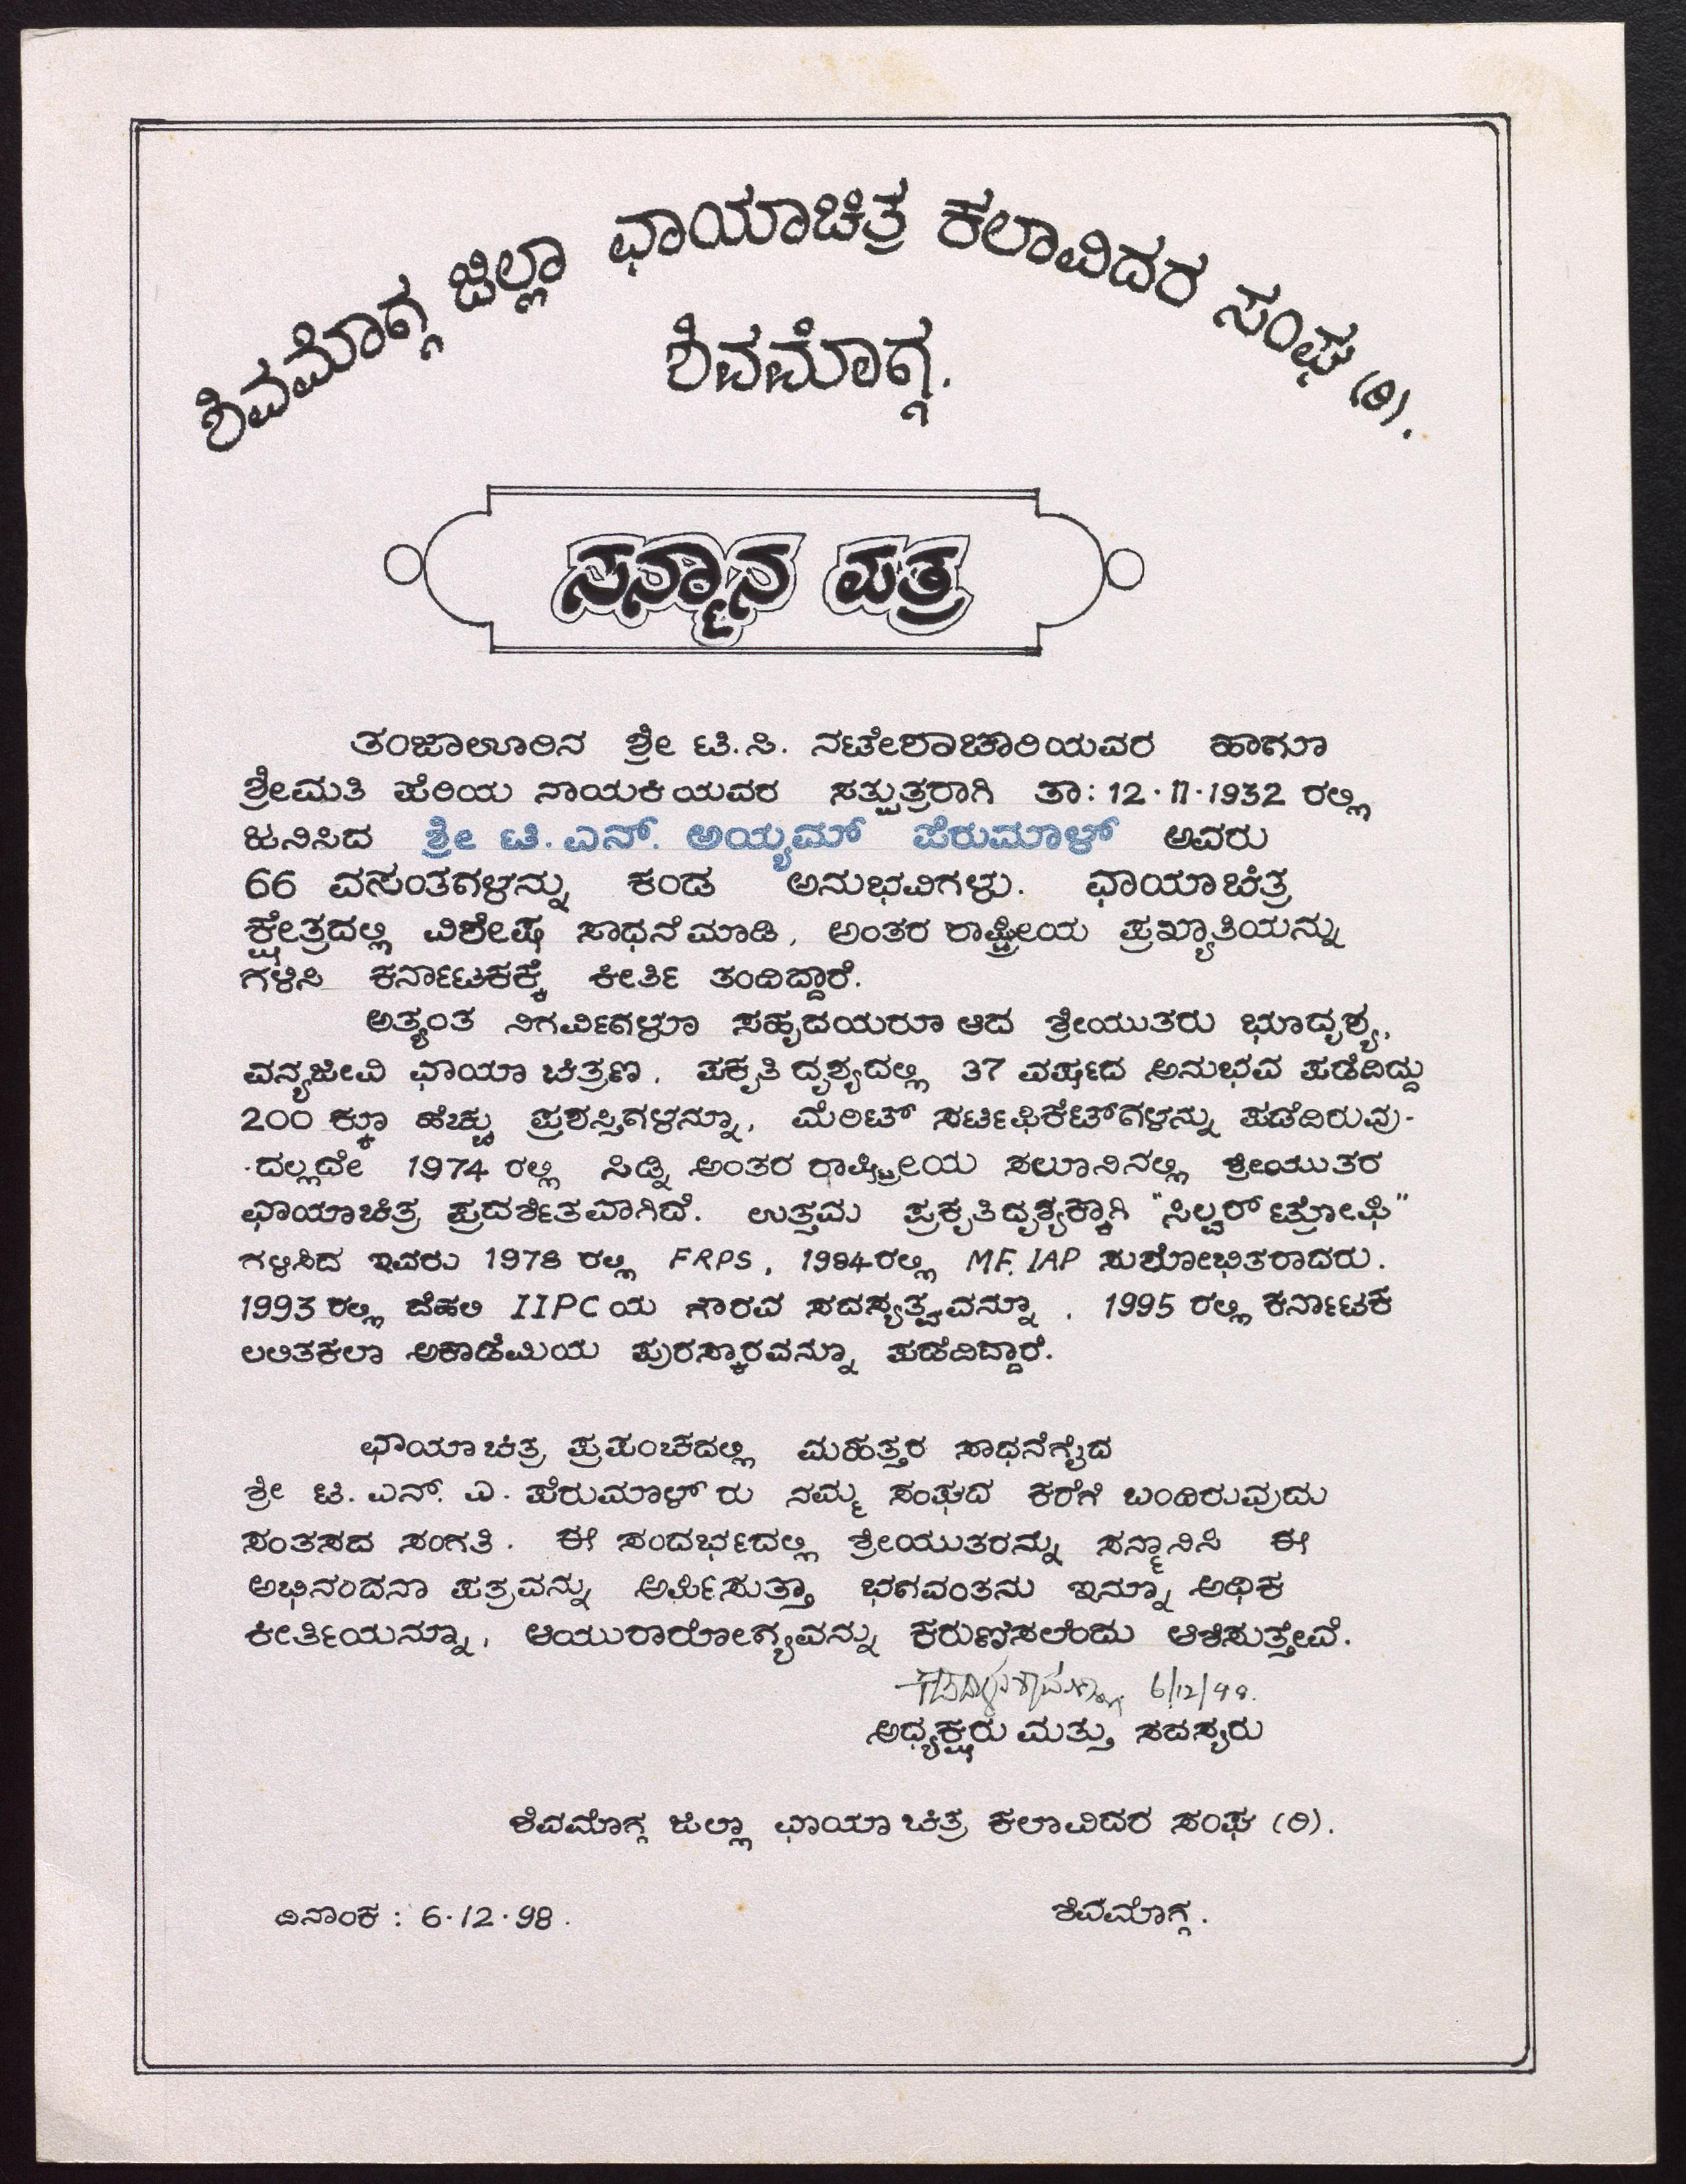 ಶಿವಮೊಗ್ಗ ಜಿಲ್ಲಾ ಛಾಯಾಚಿತ್ರ ಕಲಾವಿದರ ಸಂಘ (ರಿ).
ಶಿವಮೊಗ್ಗ.
ಸನ್ಮಾನ ಪತ್ರ
ತಂಜಾಊರಿನ ಶ್ರೀ ಟಿ.ಸಿ. ನಟೇಶಾಚಾರಿಯವರ ಹಾಗೂ
ಶ್ರೀಮತಿ ಪೆರಿಯ ನಾಯಕಿಯವರ ಸತ್ಪುತ್ರರಾಗಿ ತಾ: 12.11.1932 ರಲ್ಲಿ
ಜನಿಸಿದ ಶ್ರೀ ಟಿ.ಎನ್. ಅಯ್ಯಮ್ ಪೆರುಮಾಳ್ ಅವರು
66 ವಸಂತಗಳನ್ನು ಕಂಡ ಅನುಭವಿಗಳು. ಛಾಯಾಚಿತ್ರ
ಕ್ಷೇತ್ರದಲ್ಲಿ ವಿಶೇಷ ಸಾಧನೆ ಮಾಡಿ, ಅಂತರ ರಾಷ್ಟ್ರೀಯ ಪ್ರಖ್ಯಾತಿಯನ್ನು
ಗಳಿಸಿ ಕರ್ನಾಟಕಕ್ಕೆ ಕೀರ್ತಿ ತಂದಿದ್ದಾರೆ.
ಅತ್ಯಂತ ನಿಗರ್ವಿಗಳೂ ಸಹೃದಯರೂ ಆದ ಶ್ರೀಯುತರು ಭೂದೃಶ್ಯ,
ವನ್ಯಜೀವಿ ಛಾಯಾ ಚಿತ್ರಣ, ಪಕೃತಿ ದೃಶ್ಯದಲ್ಲಿ 37 ವರ್ಷದ ಅನುಭವ ಪಡೆದಿದ್ದು
200 ಕ್ಕೂ ಹೆಚ್ಚು ಪ್ರಶಸ್ತಿಗಳನ್ನೂ, ಮೆರಿಟ್ ಸರ್ಟಿಫಿಕೆಟ್‌ಗಳನ್ನು ಪಡೆದಿರುವು-
-ದಲ್ಲದೇ 1974 ರಲ್ಲಿ ಸಿಡ್ನಿ ಅಂತರ ರಾಷ್ಟ್ರೀಯ ಸಲೂನಿನಲ್ಲಿ ಶ್ರೀಯುತರ
ಛಾಯಾಚಿತ್ರ ಪ್ರದರ್ಶಿತವಾಗಿದೆ. ಉತ್ತಮ ಪ್ರಕೃತಿದೃಶ್ಯಕ್ಕಾಗಿ "ಸಿಲ್ವರ್ ಟ್ರೋಫಿ"
ಗಳಿಸಿದ ಇವರು 1978 ರಲ್ಲಿ FRPS, 1984ರಲ್ಲಿ MF.IAP ಸುಶೋಭಿತರಾದರು.
1993 ರಲ್ಲಿ ದೆಹಲಿ IIPC ಯ ಗೌರವ ಸದಸ್ಯತ್ವವನ್ನೂ, 1995 ರಲ್ಲಿ ಕರ್ನಾಟಕ
ಲಲಿತಕಲಾ ಅಕಾಡೆಮಿಯ ಪುರಸ್ಕಾರವನ್ನೂ ಪಡೆದಿದ್ದಾರೆ.
ಛಾಯಾ ಚಿತ್ರ ಪ್ರಪಂಚದಲ್ಲಿ ಮಹತ್ತರ ಸಾಧನೆಗೈದ
ಶ್ರೀ ಟಿ. ಎನ್. ಎ. ಪೆರುಮಾಳ್ ರು ನಮ್ಮ ಸಂಘದ ಕರೆಗೆ ಬಂದಿರುವುದು
ಸಂತಸದ ಸಂಗತಿ. ಈ ಸಂದರ್ಭದಲ್ಲಿ ಶ್ರೀಯುತರನ್ನು ಸನ್ಮಾನಿಸಿ ಈ
ಅಭಿನಂದನಾ ಪತ್ರವನ್ನು ಅರ್ಪಿಸುತ್ತಾ ಭಗವಂತನು ಇನ್ನೂ ಅಧಿಕ
ಕೀರ್ತಿಯನ್ನೂ, ಆಯುರಾರೋಗ್ಯವನ್ನು ಕರುಣಿಸಲೆಂದು ಆಶಿಸುತ್ತೇವೆ.
6/12/98.
ಅಧ್ಯಕ್ಷರು ಮತ್ತು ಸದಸ್ಯರು
ಶಿವಮೊಗ್ಗ ಜಿಲ್ಲಾ ಛಾಯಾ ಚಿತ್ರ ಕಲಾವಿದರ ಸಂಘ (ರಿ).
ದಿನಾಂಕ : 6.12.98.
ಶಿವಮೊಗ್ಗ.